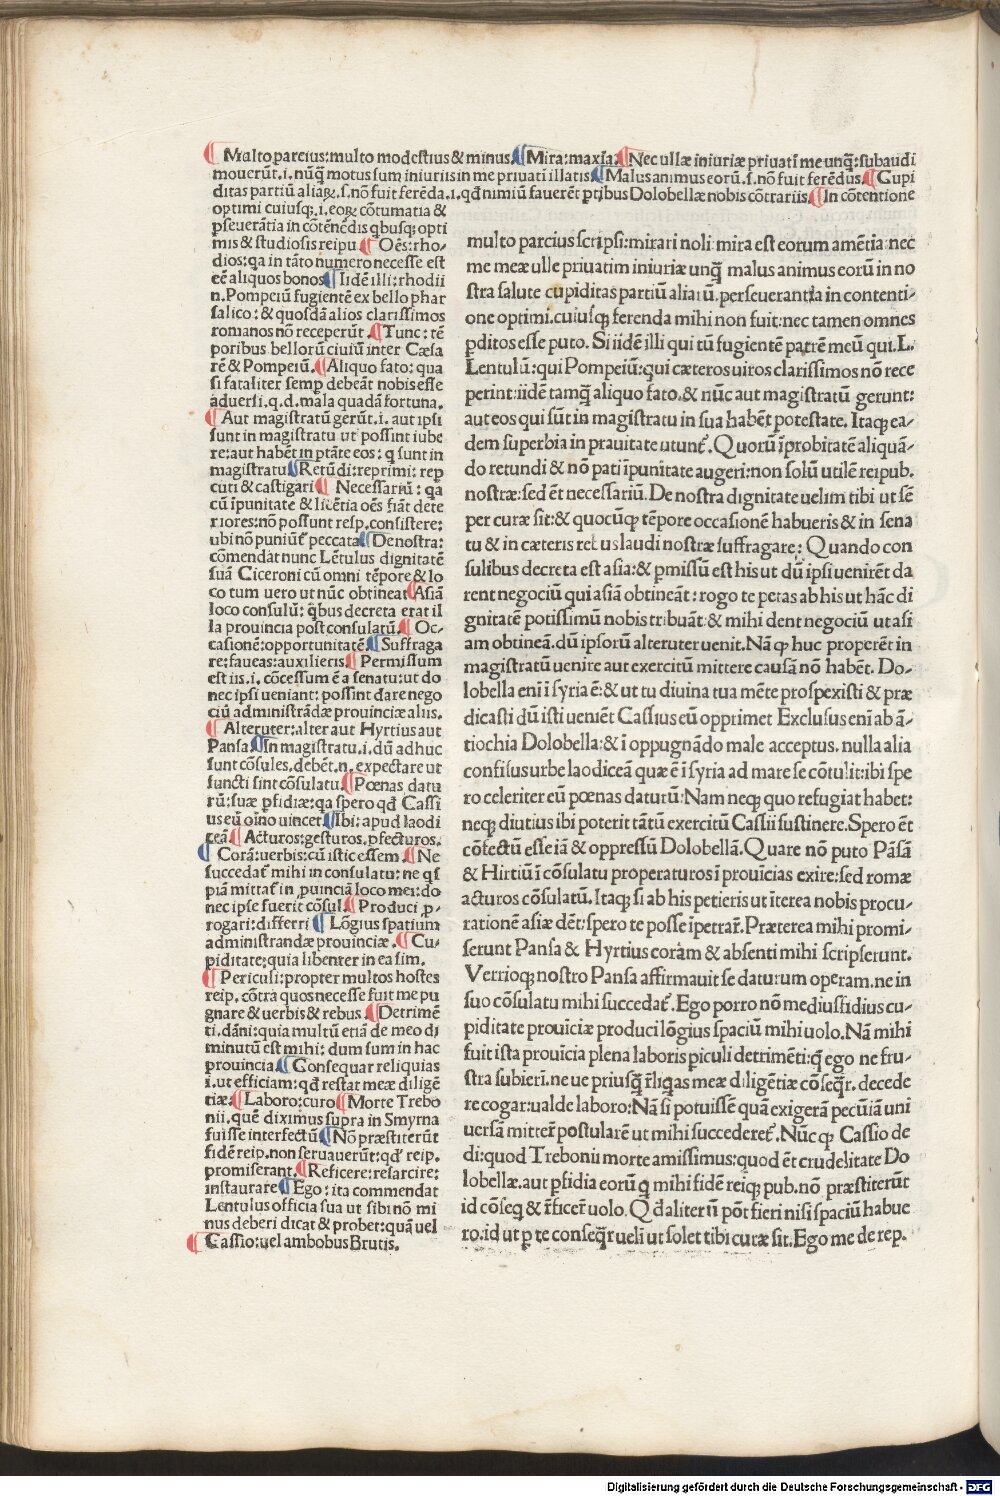 Multo parcius: multo modestius & minus. Mira: maxīa. Nec ullæ iniuriæ privatī me unq̄: subaudi
mouerūt. i. nūq̄ motus sum iniuriis in me priuati illatis. Malus animus eorū. s. nō fuit ferēdus. Cupi
ditas partiū aliaꝝ. s. nō fuit ferēda. i. qđ nimiū fauerēt ꝑtibus Dolobellæ nobis cōtrariis. In cōtentione
optimi cuiusq̨. i. eoꝝ cōtumatia &
ꝑseuerātia in cōtēnēdis qbusq̨ opti
mis & studiosis reipu. Oēs: rho-
dios: qa in tāto numero necesse est
eē aliquos bonos. Iidē illi: rhodii
n. Pompeiū fugientē ex bello phar
salico: & quosdā alios clarissimos
romanos nō receperūt. Tunc: tē
poribus bellorū ciuiū inter Cæsa
rē & Pompeiū. Aliquo fato: qua
si fataliter semꝑ debeāt nobis esse
aduersi. q. d. mala quadā fortuna.
Aut magistratū gerūt. i. aut ipsi
sunt in magistratu ut possint iube
re: aut habēt in ptāte eos: q sunt in
magistratu. Retūdi: reprimi: rep
cuti & castigari. Necessariū: qa
cū īpunitate & licētia oēs fiāt dete
riores: nō possunt resp. consistere:
ubi nō puniūt̃ peccata. De nostra:
cōmendat nunc Lētulus dignitatē
suā Ciceroni cū omni tēpore & lo
co tum uero ut nūc obtineat. Asiā
loco consulū: qbus decreta erat il
la prouincia post consulatū. Oc-
casionē: opportunitatē. Suffraga
re: faueas: auxilieris. Permissum
est iis. i. cōcessum ē a senatu: ut do
nec ipsi ueniant: possint dare nego
ciū administrādæ prouinciæ aliis.
Alteruter: alter aut Hyrtius aut
Pansa. In magistratu. i. dū adhuc
sunt cōsules. debēt. n. expectare ut
functi sint cōsulatu. Pœnas datu
rū: suæ ꝑfidiæ: qa spero qđ Cassi
us eū oīno uincet. Ibi: apud laodi
ceā. Acturos: gesturos. ꝑfecturos.
Corā: uerbis: cū istic essem. Ne
succedat̃ mihi in consulatu: ne qs
piā mittat̃ in ꝓuinciā loco mei: do
nec ipse fuerit cōsul. Produci ꝓ-
rogari: differri. Lōgius spatium
administrandæ prouinciæ. Cu-
piditate: quia libenter in ea sim.
Periculi: propter multos hostes
reip. cōtra quos necesse fuit me pu
gnare & uerbis & rebus. Detrimē
ti. dāni: quia multū etiā de meo di
minutū est mihi: dum sum in hac
prouincia. Consequar reliquias
i. ut efficiam: qđ restat meæ diligē
tiæ. Laboro: curo. Morte Trebo
nii. quē diximus supra in Smyrna
fuisse interfectū. Nō præstiterūt
fidē reip. non seruauerūt: qđ reip.
promiserant. Reficere: resarcire:
instaurare. Ego: ita commendat
Lentulus officia sua ut sibi nō mi
nus deberi dicat & probet: quā uel
Cassio: uel ambobus Brutis.
multo parcius scripsi: mirari noli. mira est eorum amētia: nec
me meæ ulle priuatim iniuriæ unq̄ malus animus eorū in no
stra salute cupiditas partiū aliarū. perseuerantia in contenti-
one optimi. cuiusq̨ ferenda mihi non fuit: nec tamen omnes
ꝑditos esse puto. Si iidē illi qui tū fugientē patrē meū qui. L.
Lentulū: qui Pompeiū: qui cæteros uiros clarissimos nō rece
perint: iidē tamq̄ aliquo fato. & nūc aut magistratū gerunt:
aut eos qui sūt in magistratu in sua habēt potestate. Itaq̨ ea-
dem superbia in prauitate utunt̃. Quorū īprobitatē aliquā-
do retundi & nō pati īpunitate augeri: non solū utilē reipub.
nostræ: sed ēt necessariū. De nostra dignitate uelim tibi ut sē
per curæ sit: & quocūq̨ tēpore occasionē habueris & in sena
tu & in cæteris rebus laudi nostræ suffragare: Quando con
sulibus decreta est asia: & ꝑmissū est his ut dū ipsi uenirēt da
rent negociū qui asiā obtineāt: rogo te petas ab his ut hāc di
gnitatē potissimū nobis tribuāt: & mihi dent negociū ut asi
am obtineā. dū ipsorū alteruter uenit. Nā q̨ huc properēt in
magistratū uenire aut exercitū mittere causā nō habēt. Do-
lobella enī ī syria ē: & ut tu diuina tua mēte prospexisti & præ
dicasti dū isti ueniēt Cassius eū opprimet Exclusus enī ab ā-
tiochia Dolobella: & ī oppugnādo male acceptus. nulla alia
confisus urbe laodiceā quæ ē ī syria ad mare se cōtulit: ibi spe
ro celeriter eū pœnas daturū: Nam neq̨ quo refugiat habet:
neq̨ diutius ibi poterit tātū exercitū Cassii sustinere. Spero ēt
cōfectū esse iā & oppressū Dolobellā. Quare nō puto Pāsā
& Hirtiū ī cōsulatu properaturos ī prouīcias exire: sed romæ
acturos cōsulatū. Itaq̨ si ab his petieris ut īterea nobis procu-
rationē asiæ dēt: spero te posse īpetrar̃. Præterea mihi promi-
serunt Pansa & Hyrtius coràm & absenti mihi scripserunt.
Verrioq̨ nostro Pansa affirmauit se daturum operam. ne in
suo cōsulatu mihi succedat̃. Ego porro nō mediusfidius cu-
piditate prouīciæ produci lōgius spaciū mihi uolo. Nā mihi
fuit ista prouīcia plena laboris ꝑiculi detrimēti: q̄ ego ne fru-
stra subierī. ne ue priusq̄ r̃liq̨as meæ diligētiæ cōseq̄r. decede
re cogar: ualde laboro: Nā si potuissē quā exigerā pecūiā uni
uersā mitter̃ postularē ut mihi succederet̃. Nūc q̨ Cassio de
di: quod Trebonii morte amissimus: quod ēt crudelitate Do
lobellæ. aut ꝑfidia eorū q̄ mihi fidē reiq̨ pub. nō præstiterūt
id cōseq̨ & r̃ficer̃ uolo. Qđ aliter nō pōt fieri nisi spaciū habue
ro. id ut ꝑ te conseq̄r ueli ut solet tibi curæ sit. Ego me de rep.
Digitalisierung gefördert durch die Deutsche Forschungsgemeinschaft - DFG